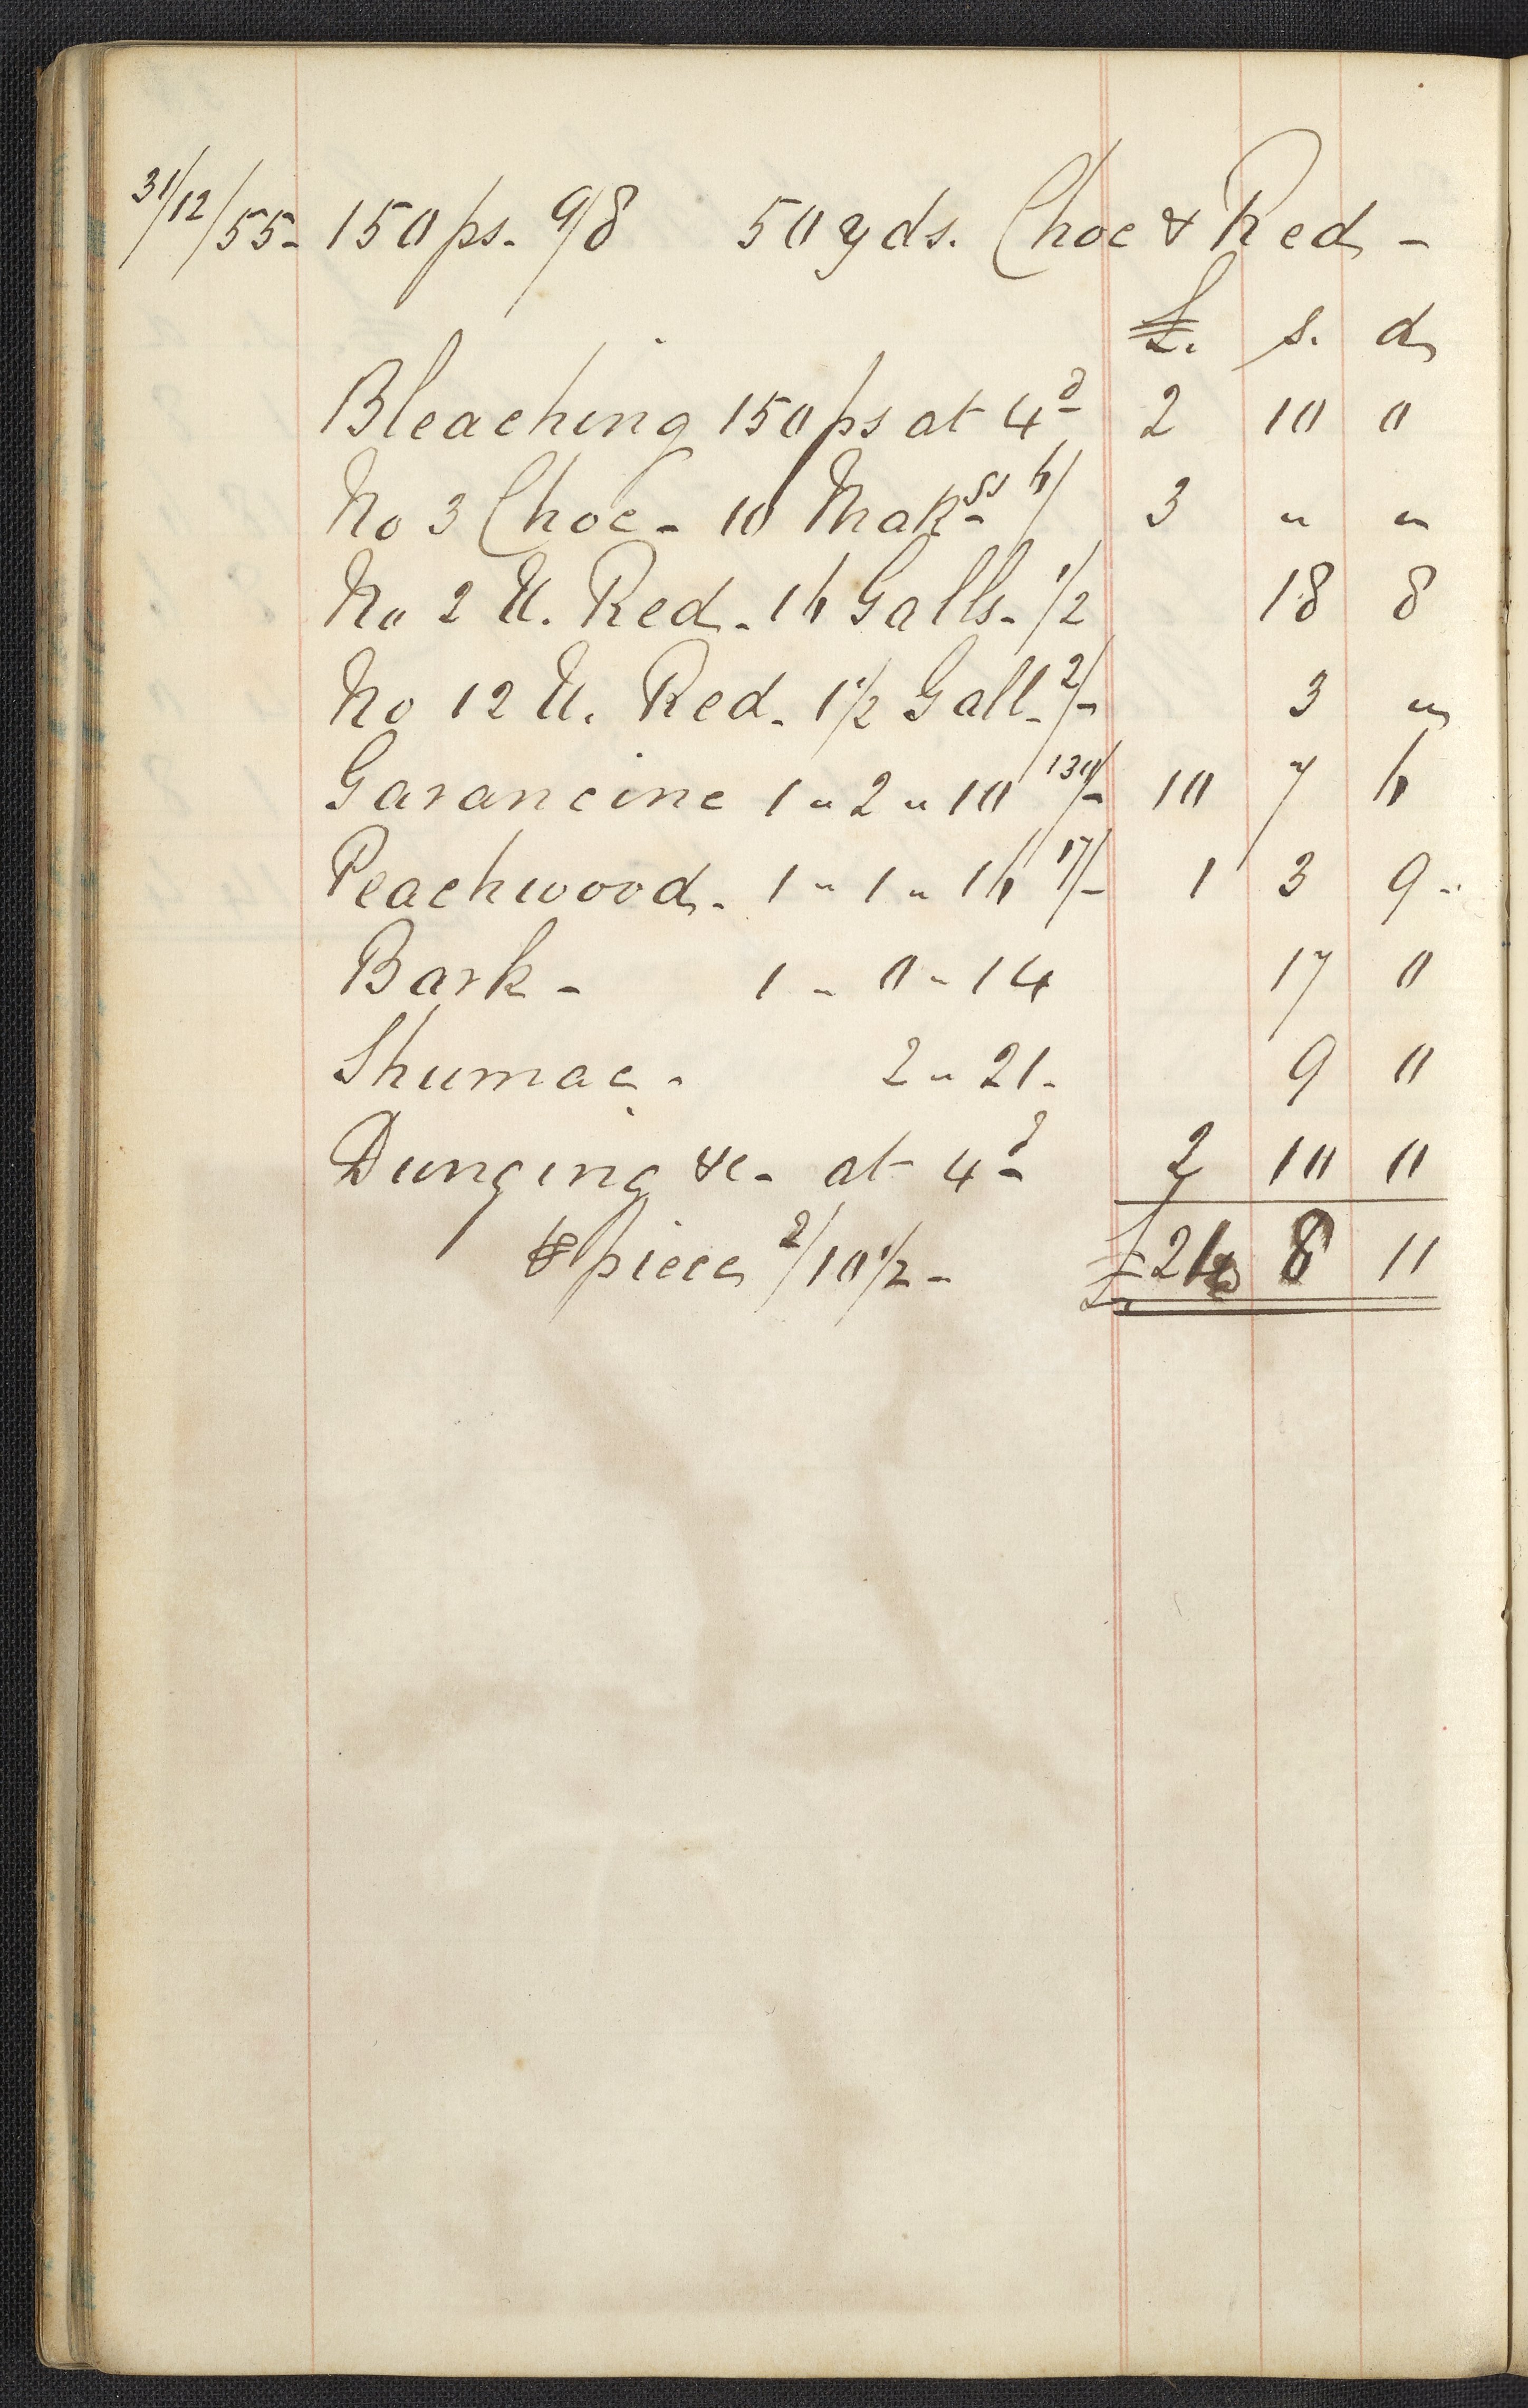 31/12/55- 150 ps. 9/8 50 yds. Choc & Red -
£. s. d
Bleaching 150 ps at 4d 2 10 0
No 3 Choc - 10 Makgs 6/ 3 " "
No 2 U. Red - 16 Galls - 1/2 18 8
No 12 U. Red - 1 1/2 Gall - 2/- 3 "
Garancine 1 " 2 " 10 130/- 10 7 6
Peachwood - 1 " 1 " 16 17/- 1 3 9 -
Bark - 1 - 0 - 14 17 0
Shumac - 2 " 21 - 9 0
Dunging &c - at 4d 2 10 0
piece 2/10 1/2 - £21 8 11